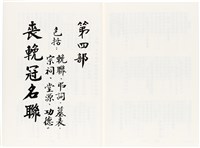 第四部
包括：輓聯、弔詞、墓表
宗祠、堂源、功德。
喪輓冠名聯